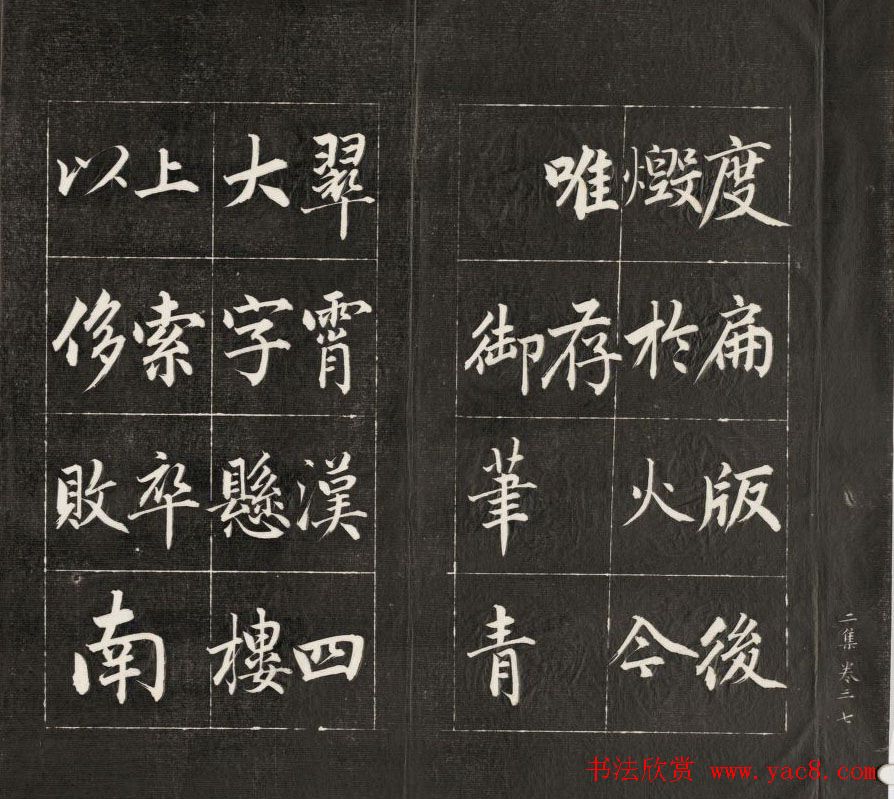 度扁版後
燬於火今
唯存
御筆青
翠霄漢四
大字懸樓
上索卒南
以侈敗
二集卷三 七
书法欣赏 www.yac8.com